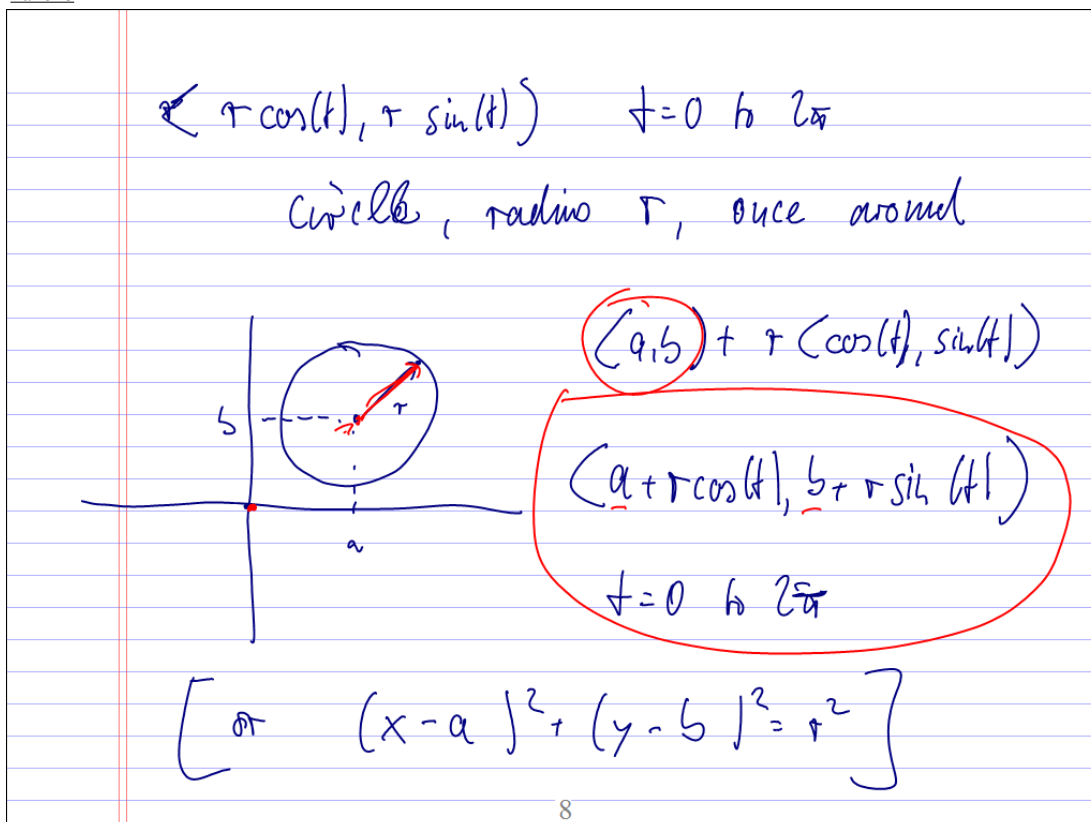 ( r cos(t), r sin(t) ) t=0 to 2π
circle, radius r, once around
(a,b) + r (cos(t), sin(t))
b
r
(a + r cos(t), b + r sin(t))
a
t=0 to 2π
[ or (x - a)² + (y - b)² = r² ]
8